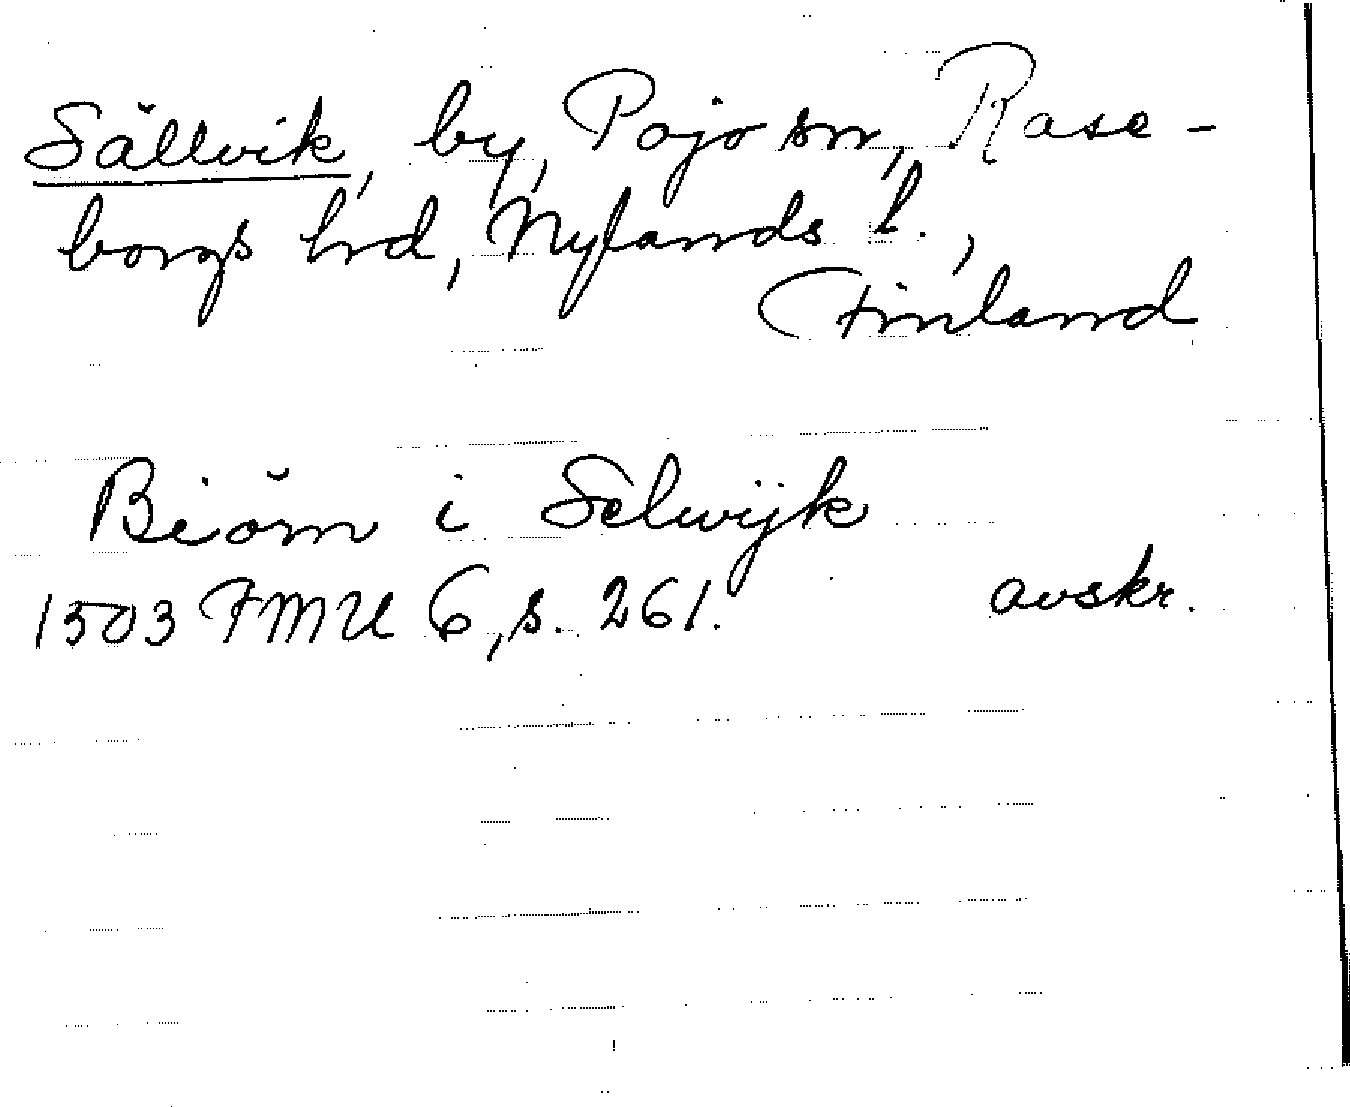 Sällvik, by, Pojo sn, Rase-
borgs hrd, Nylands l.,
Finland
Biörn i Selwijk
1503 FMU 6, s. 261. avskr.